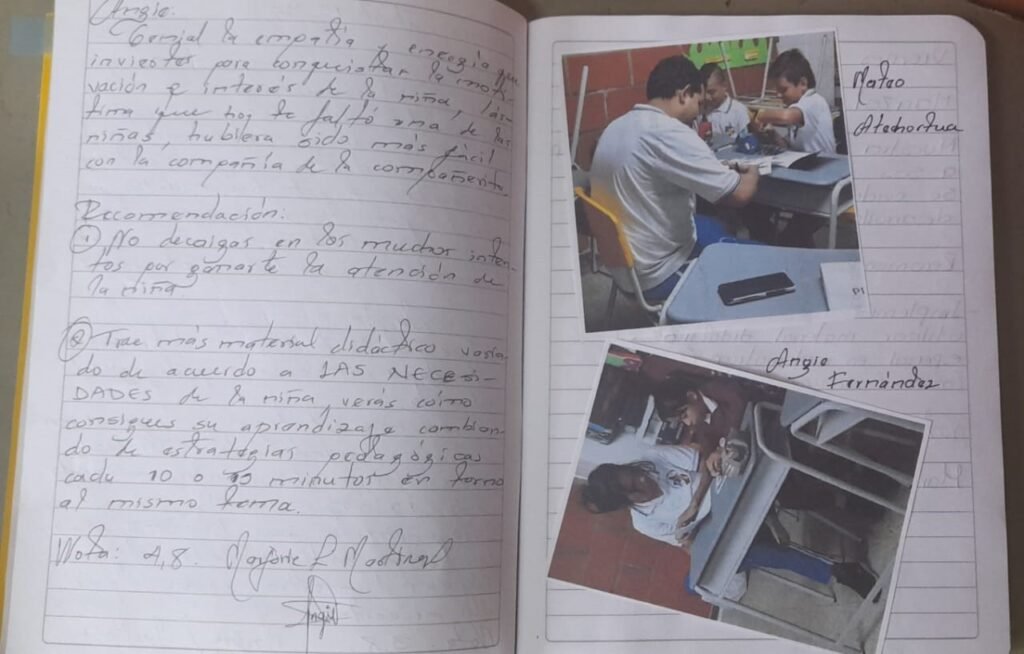 Angie.
Genial la empatía y energía que
inviertes para conquistar la moti-
vación e interés de la niña, lás-
tima que hoy te faltó una de las
niñas, hubiera sido más fácil
con la compañía de la compañerita
Recomendación:
① No decaigas en los muchos inten-
tos por ganarte la atención de
la niña
② Trae más material didáctico varia-
do de acuerdo a LAS NECESI-
DADES de la niña, verás cómo
consigues su aprendizaje cambian-
do de estrategias pedagógicas
cada 10 o 15 minutos en torno
al mismo tema.
Nota: 4,8.
Angie
Mateo
Atehortua
Angie
Fernández